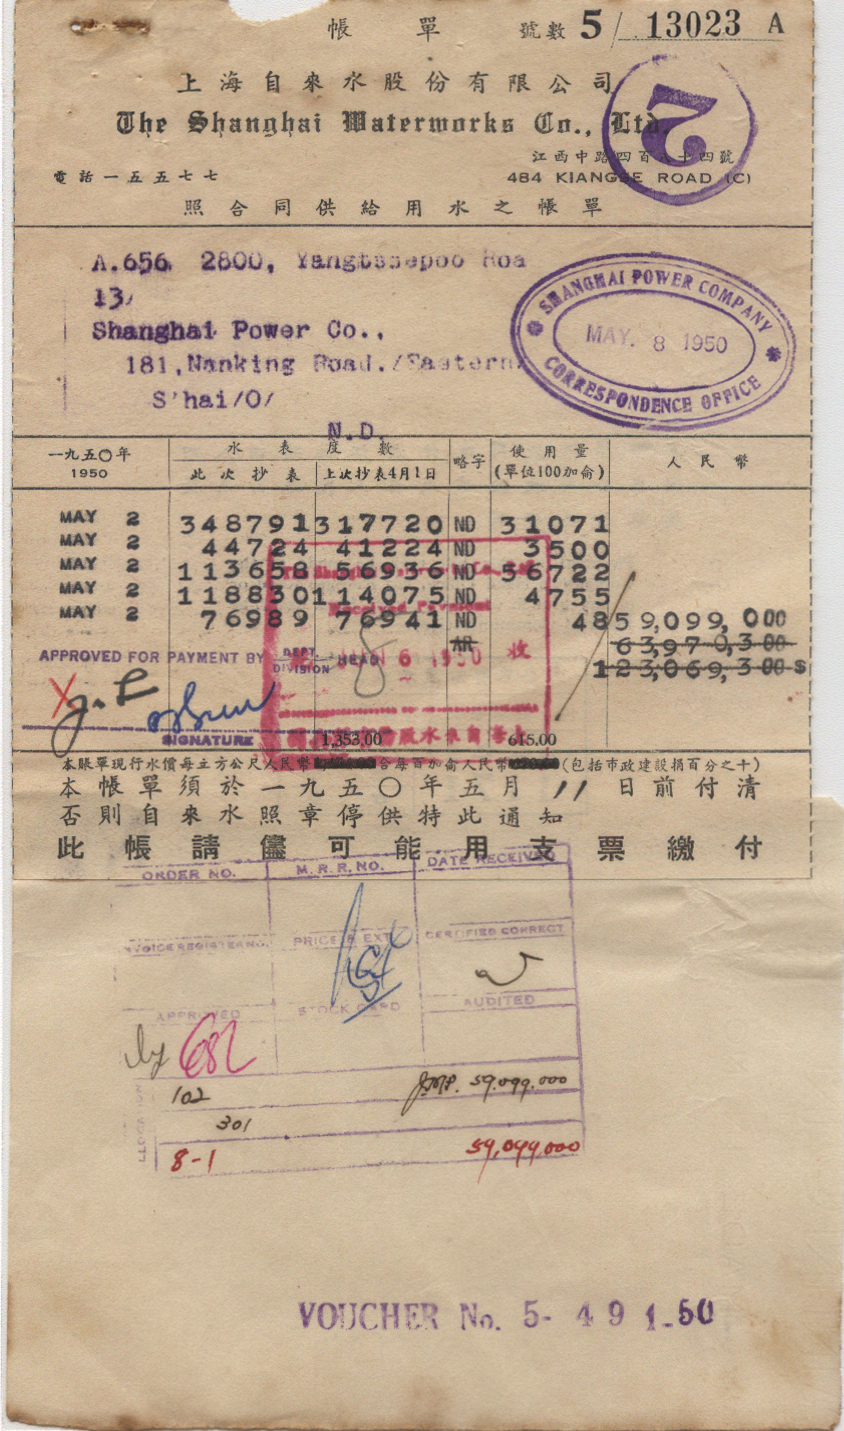 帳 單 號數 5/ 13023 A
上海自來水股份有限公司
The Shanghai Waterworks Co., Ltd.
2
江西中路四百八十四號
電話一五五七七 484 KIANGSE ROAD (C)
照合同供給用水之帳單
A.656 2800, Yangtszepoo Roa
13/
Shanghai Power Co.,
181,Nanking Road./Eastern/
S'hai/O/
N.D.
SHANGHAI POWER COMPANY
MAY. 8 1950
CORRESPONDENCE OFFICE
一九五〇年 水表度數 略字 使用量 人民幣
1950 此次抄表 上次抄表4月1日 (單位100加侖)
MAY 2 348791 317720 ND 31071
MAY 2 44724 41224 ND 3500
MAY 2 113658 56936 ND 56722
MAY 2 118830 114075 ND 4755
MAY 2 76989 76941 ND 48 59,099,000
AR 63,970,300
123,069,300 S
Received Payment
6 1950 收
APPROVED FOR PAYMENT BY DEPT. DIVISION HEAD
SIGNATURE
1,353.00 615.00
本賬單現行水價每立方公尺人民幣 合每百加侖人民幣 (包括市政建設捐百分之十)
本帳單須於一九五〇年五月 11 日前付清
否則自來水照章停供特此通知
此帳請儘可能用支票繳付
ORDER NO. M.R.R. NO. DATE RECEIVED
INVOICE REGISTER NO. PRICE & EXT. CERTIFIED CORRECT
APPROVED STOCK CARD AUDITED
102 JMP. 59,099,000
301
8-1 59,099,000
VOUCHER No. 5- 491-50